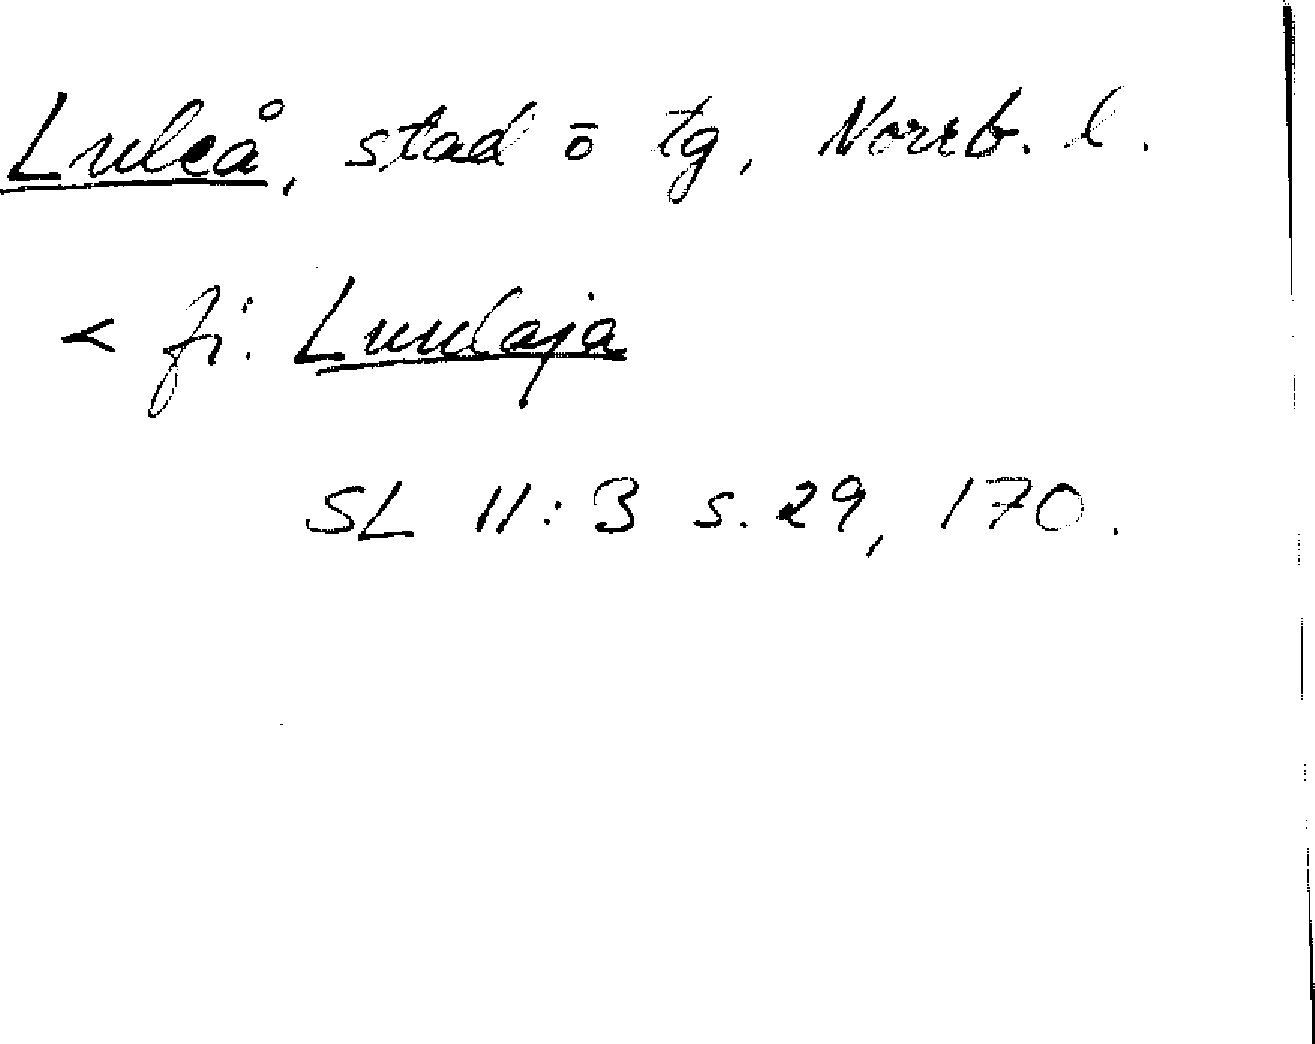 Luleå, stad ō tg, Norrb. l.
< fi. Luulaja
SL 11:3 s. 29, 170.